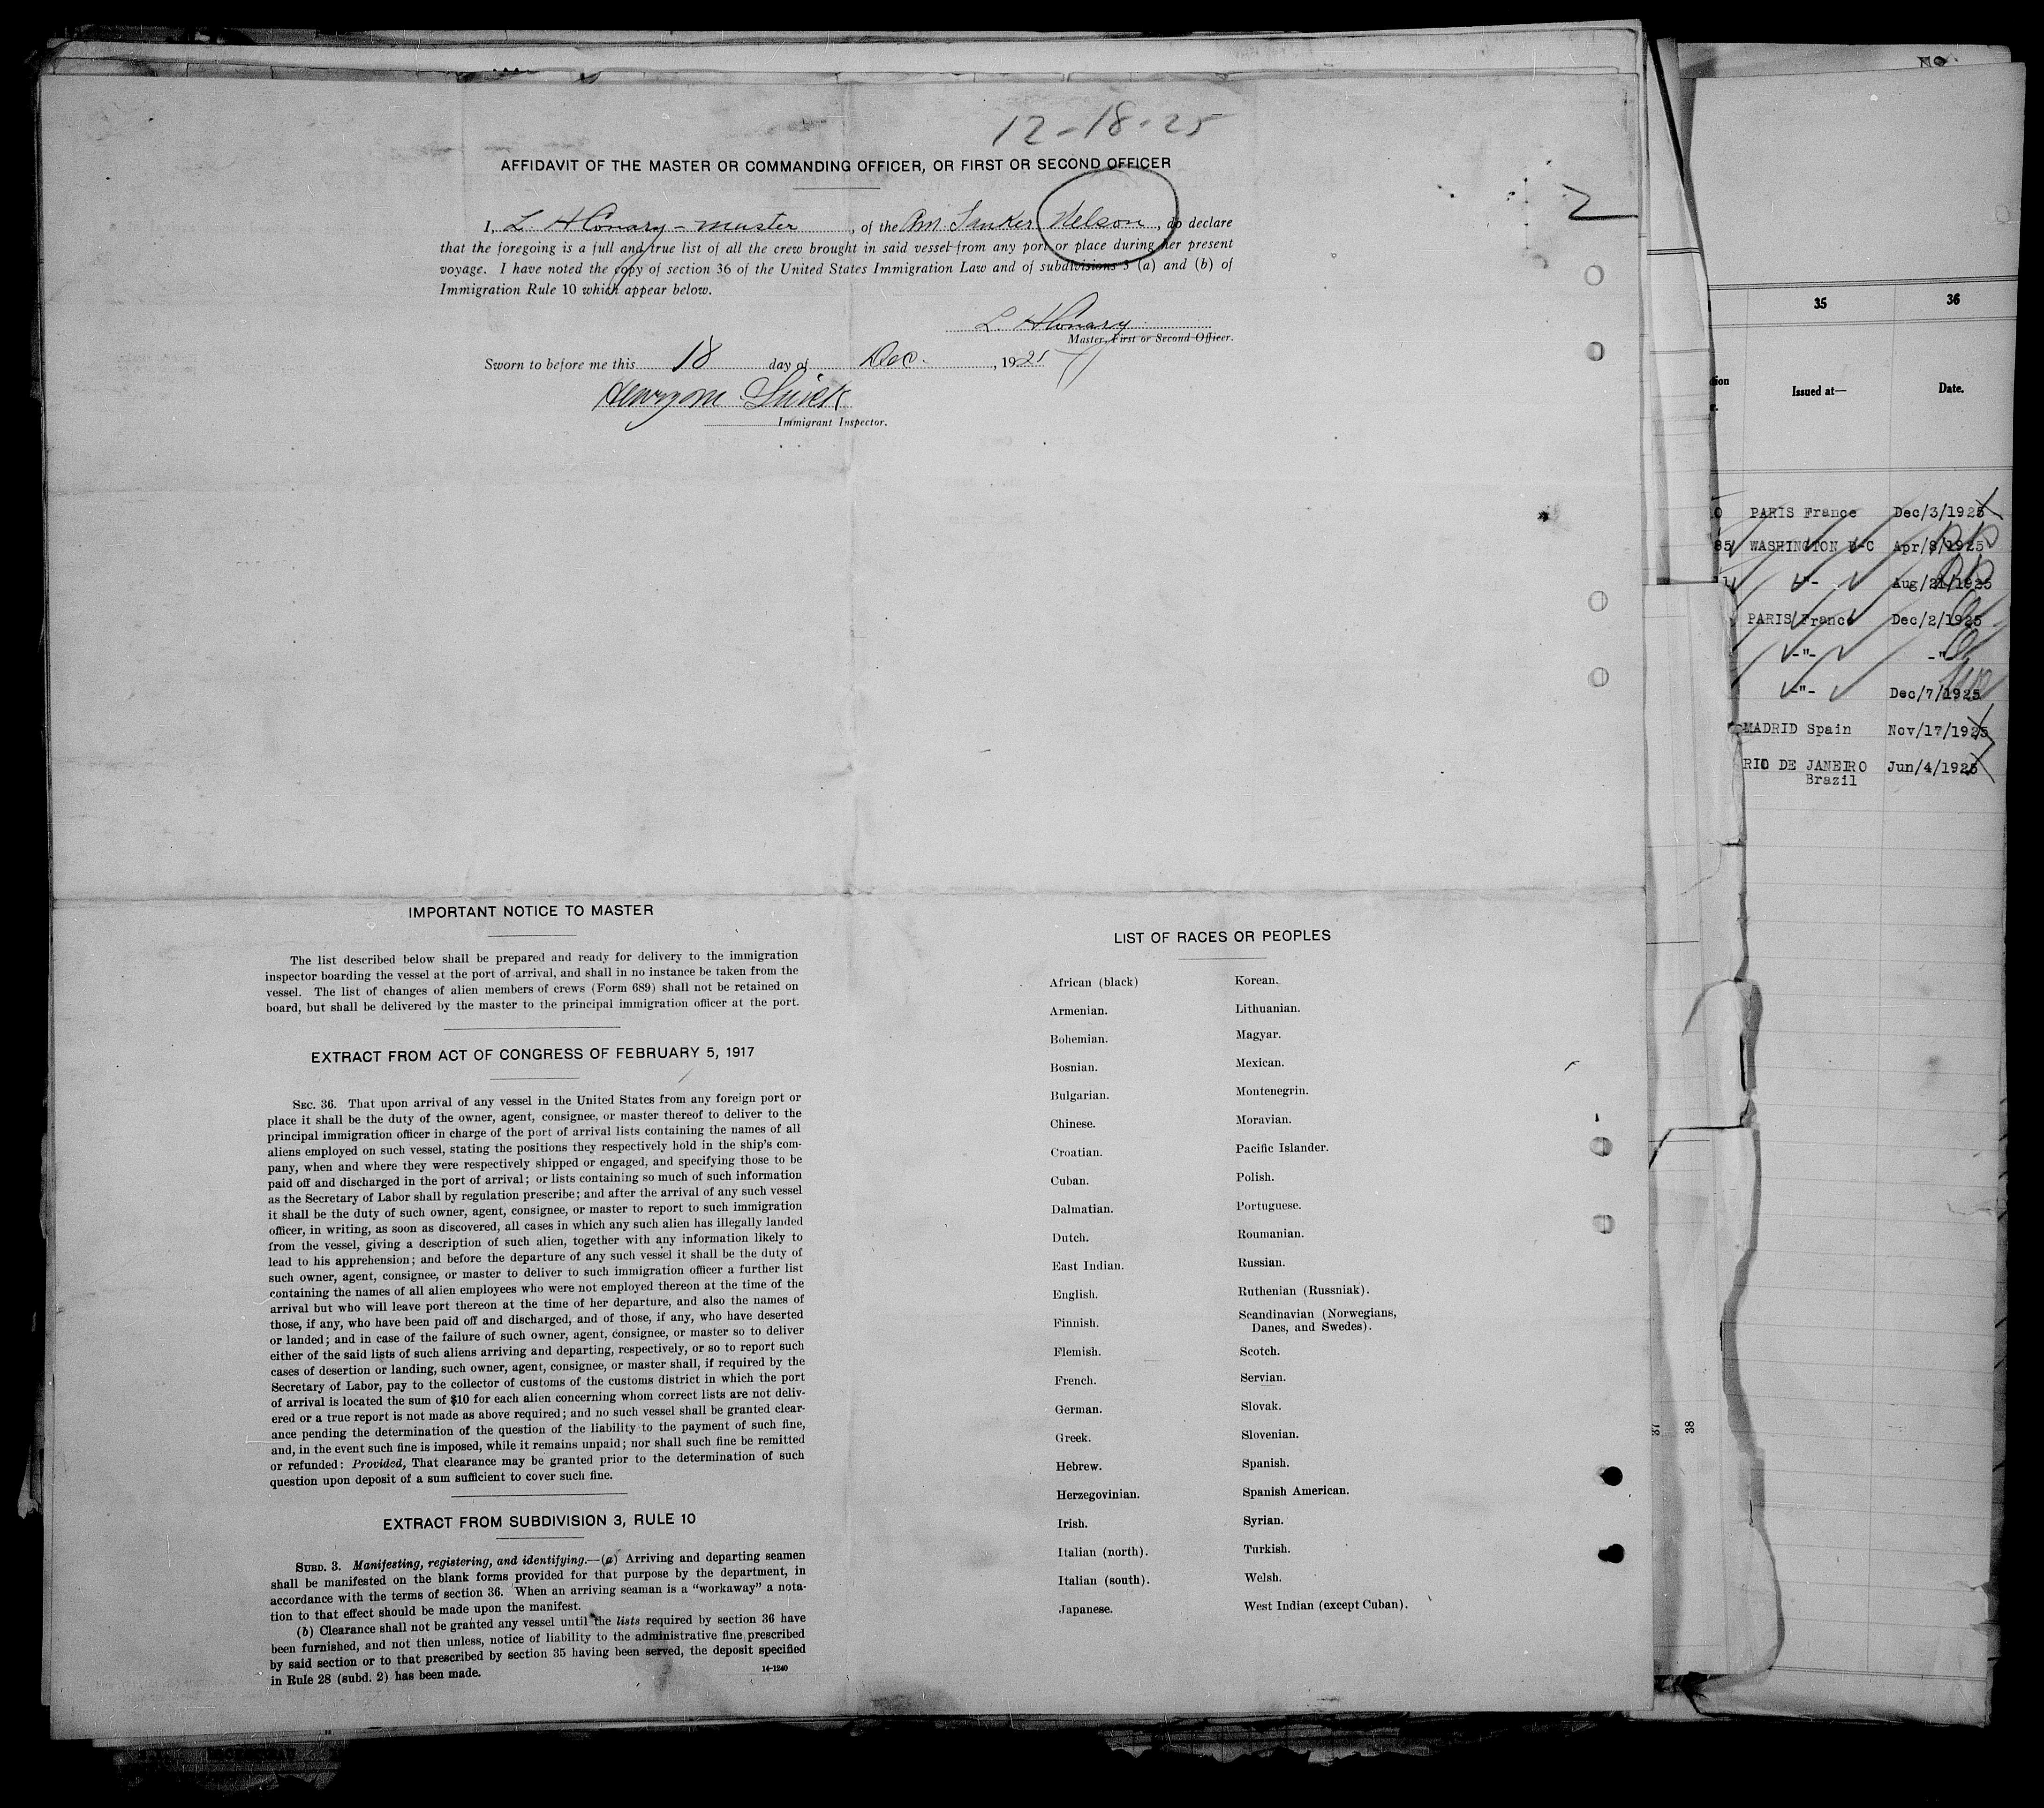 12-18-25
AFFIDAVIT OF THE MASTER OR COMMANDING OFFICER, OR FIRST OR SECOND OFFICER
I, L H Conary - master, of the Am. Tanker Nelson, do declare
that the foregoing is a full and true list of all the crew brought in said vessel from any port or place during her present
voyage. I have noted the copy of section 36 of the United States Immigration Law and of subdivisions 3 (a) and (b) of
Immigration Rule 10 which appear below.
L. H Conary
Master, First or Second Officer.
Sworn to before me this 18 day of Dec., 1925
Immigrant Inspector.
2
IMPORTANT NOTICE TO MASTER
The list described below shall be prepared and ready for delivery to the immigration
inspector boarding the vessel at the port of arrival, and shall in no instance be taken from the
vessel. The list of changes of alien members of crews (Form 689) shall not be retained on
board, but shall be delivered by the master to the principal immigration officer at the port.
EXTRACT FROM ACT OF CONGRESS OF FEBRUARY 5, 1917
SEC. 36. That upon arrival of any vessel in the United States from any foreign port or
place it shall be the duty of the owner, agent, consignee, or master thereof to deliver to the
principal immigration officer in charge of the port of arrival lists containing the names of all
aliens employed on such vessel, stating the positions they respectively hold in the ship's com-
pany, when and where they were respectively shipped or engaged, and specifying those to be
paid off and discharged in the port of arrival; or lists containing so much of such information
as the Secretary of Labor shall by regulation prescribe; and after the arrival of any such vessel
it shall be the duty of such owner, agent, consignee, or master to report to such immigration
officer, in writing, as soon as discovered, all cases in which any such alien has illegally landed
from the vessel, giving a description of such alien, together with any information likely to
lead to his apprehension; and before the departure of any such vessel it shall be the duty of
such owner, agent, consignee, or master to deliver to such immigration officer a further list
containing the names of all alien employees who were not employed thereon at the time of the
arrival but who will leave port thereon at the time of her departure, and also the names of
those, if any, who have been paid off and discharged, and of those, if any, who have deserted
or landed; and in case of the failure of such owner, agent, consignee, or master so to deliver
either of the said lists of such aliens arriving and departing, respectively, or so to report such
cases of desertion or landing, such owner, agent, consignee, or master shall, if required by the
Secretary of Labor, pay to the collector of customs of the customs district in which the port
of arrival is located the sum of $10 for each alien concerning whom correct lists are not deliv-
ered or a true report is not made as above required; and no such vessel shall be granted clear-
ance pending the determination of the question of the liability to the payment of such fine,
and, in the event such fine is imposed, while it remains unpaid; nor shall such fine be remitted
or refunded: Provided, That clearance may be granted prior to the determination of such
question upon deposit of a sum sufficient to cover such fine.
EXTRACT FROM SUBDIVISION 3, RULE 10
SUBD. 3. Manifesting, registering, and identifying.—(a) Arriving and departing seamen
shall be manifested on the blank forms provided for that purpose by the department, in
accordance with the terms of section 36. When an arriving seaman is a "workaway" a nota-
tion to that effect should be made upon the manifest.
(b) Clearance shall not be granted any vessel until the lists required by section 36 have
been furnished, and not then unless, notice of liability to the administrative fine prescribed
by said section or to that prescribed by section 35 having been served, the deposit specified
in Rule 28 (subd. 2) has been made.
14-1240
LIST OF RACES OR PEOPLES
African (black)
Armenian.
Bohemian.
Bosnian.
Bulgarian.
Chinese.
Croatian.
Cuban.
Dalmatian.
Dutch.
East Indian.
English.
Finnish.
Flemish.
French.
German.
Greek.
Hebrew.
Herzegovinian.
Irish.
Italian (north).
Italian (south).
Japanese.
Korean.
Lithuanian.
Magyar.
Mexican.
Montenegrin.
Moravian.
Pacific Islander.
Polish.
Portuguese.
Roumanian.
Russian.
Ruthenian (Russniak).
Scandinavian (Norwegians,
Danes, and Swedes).
Scotch.
Servian.
Slovak.
Slovenian.
Spanish.
Spanish American.
Syrian.
Turkish.
Welsh.
West Indian (except Cuban).
No.
35 36
Issued at— Date.
PARIS France Dec/3/1925
85 WASHINGTON D-C Apr/8/1925
-"- Aug/21/1925
PARIS France Dec/2/1925
-"- -"-
-"- Dec/7/1925
MADRID Spain Nov/17/1925
RIO DE JANEIRO Jun/4/1925
Brazil
37 38